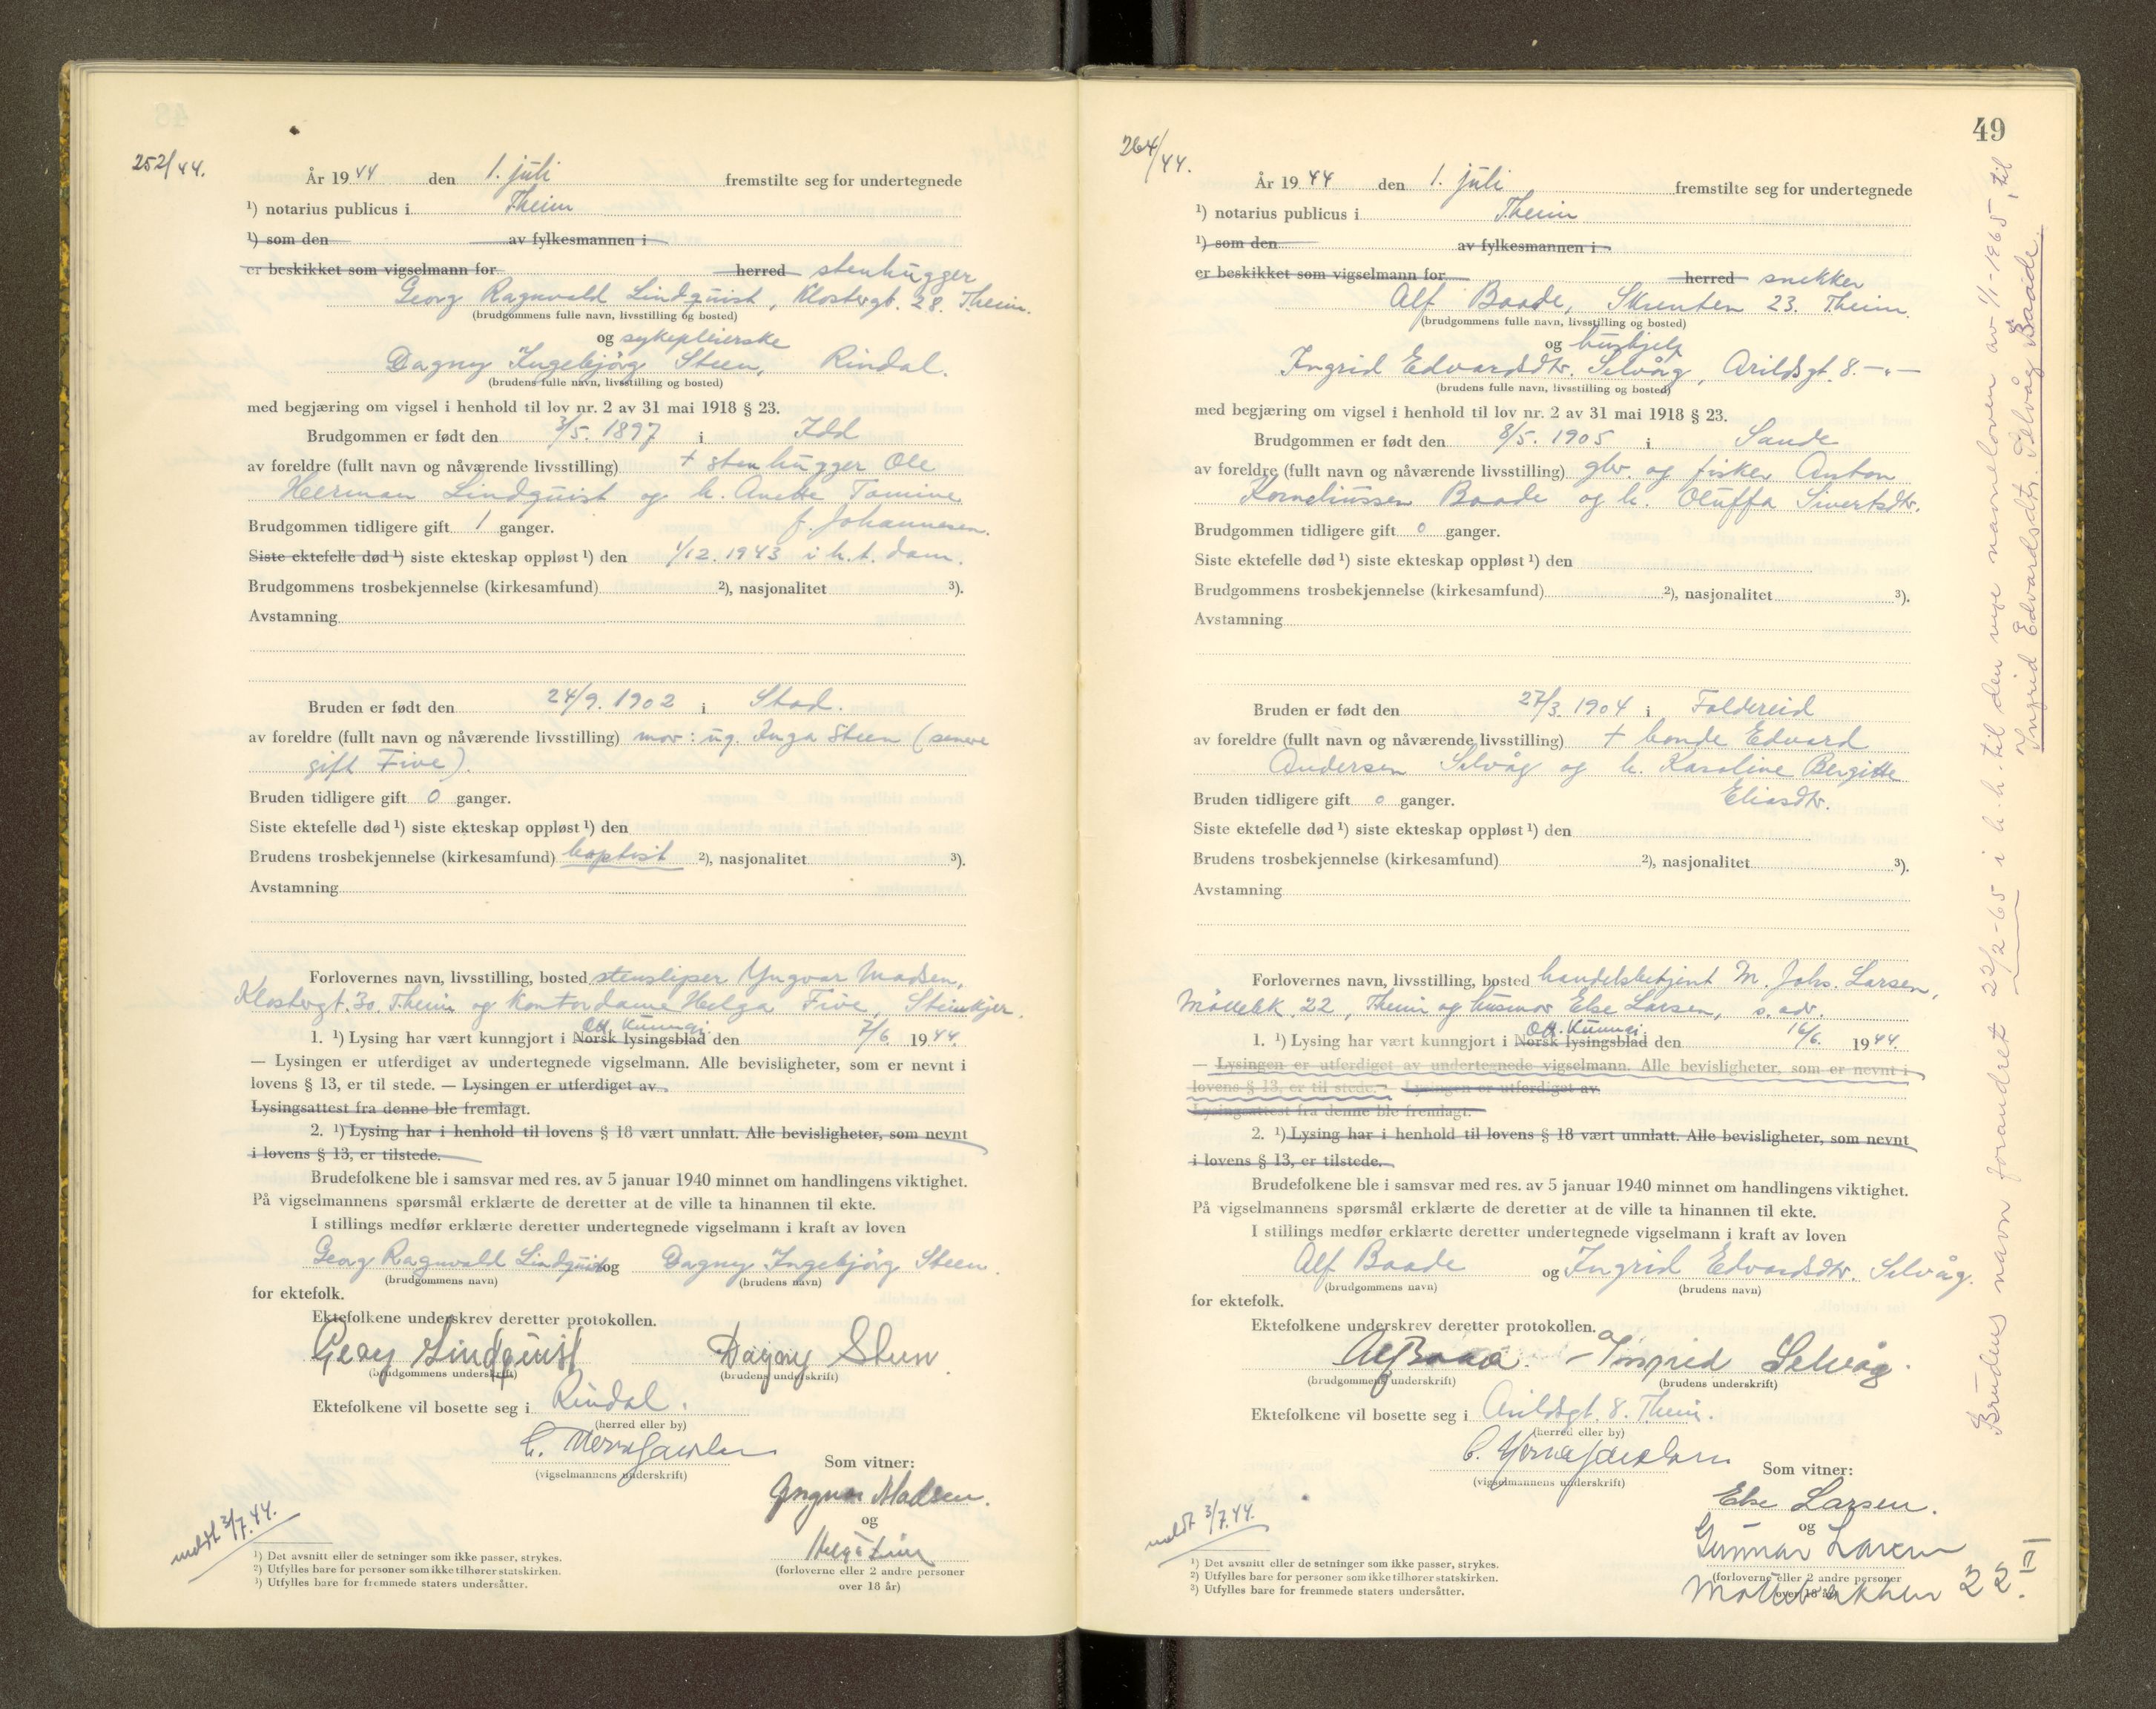 252/44.
År 1944 den 1. juli fremstilte seg for undertegnede
¹) notarius publicus i Theim
¹) som den av fylkesmannen i
er beskikket som vigselmann for herred stenhugger
Georg Ragnvald Lindquist, Klostergt. 28. Theim.
(brudgommens fulle navn, livsstilling og bosted)
og sykepleierske
Dagny Ingebjörg Steen, Rindal.
(brudens fulle navn, livsstilling og bosted)
med begjæring om vigsel i henhold til lov nr. 2 av 31 mai 1918 § 23.
Brudgommen er født den 3/5. 1897 i Idd
av foreldre (fullt navn og nåværende livsstilling) + stenhugger Ole
Herman Lindquist og h. Anette Tomine
f. Johannesen.
Brudgommen tidligere gift 1 ganger.
Siste ektefelle død ¹) siste ekteskap oppløst ¹) den 1/12. 1943 i h.t. dom.
Brudgommens trosbekjennelse (kirkesamfund) ²), nasjonalitet ³).
Avstamning
Bruden er født den 24/9. 1902 i Stod.
av foreldre (fullt navn og nåværende livsstilling) mor: ug. Inga Steen (senere
gift Five).
Bruden tidligere gift 0 ganger.
Siste ektefelle død ¹) siste ekteskap oppløst ¹) den
Brudens trosbekjennelse (kirkesamfund) baptist ²), nasjonalitet ³).
Avstamning
Forlovernes navn, livsstilling, bosted stensliper Yngvar Madsen,
Klostergt. 30. Theim og kontordame Helga Five, Steinkjer.
Off. Kunngj.
1. ¹) Lysing har vært kunngjort i Norsk lysingsblad den 7/6. 1944.
— Lysingen er utferdiget av undertegnede vigselmann. Alle bevisligheter, som er nevnt i
lovens § 13, er til stede. — Lysingen er utferdiget av
Lysingsattest fra denne ble fremlagt.
2. ¹) Lysing har i henhold til lovens § 18 vært unnlatt. Alle bevisligheter, som nevnt
i lovens § 13, er tilstede.
Brudefolkene ble i samsvar med res. av 5 januar 1940 minnet om handlingens viktighet.
På vigselmannens spørsmål erklærte de deretter at de ville ta hinannen til ekte.
I stillings medfør erklærte deretter undertegnede vigselmann i kraft av loven
Georg Ragnvald Lindquist og Dagny Ingebjörg Steen.
(brudgommens navn) (brudens navn)
for ektefolk.
Ektefolkene underskrev deretter protokollen.
Georg Lindquist Dagny Steen
(brudgommens underskrift) (brudens underskrift)
Ektefolkene vil bosette seg i Rindal.
(herred eller by)
(vigselmannens underskrift)
Som vitner:
Yngvar Madsen.
og
Helga Five
(forloverne eller 2 andre personer
over 18 år)
meldt 3/7.44.
¹) Det avsnitt eller de setninger som ikke passer, strykes.
²) Utfylles bare for personer som ikke tilhører statskirken.
³) Utfylles bare for fremmede staters undersåtter.
49
264/44.
År 1944 den 1. juli fremstilte seg for undertegnede
¹) notarius publicus i Theim
¹) som den av fylkesmannen i
er beskikket som vigselmann for herred snekker
Alf Baade, Skrenten 23. Theim.
(brudgommens fulle navn, livsstilling og bosted)
og hushjelp
Ingrid Edvardsdtr. Selvåg, Arildsgt. 8. —„—
(brudens fulle navn, livsstilling og bosted)
med begjæring om vigsel i henhold til lov nr. 2 av 31 mai 1918 § 23.
Brudgommen er født den 8/5. 1905 i Sande
av foreldre (fullt navn og nåværende livsstilling) gbr. og fisker Anton
Korneliussen Baade og h. Oluffa Sivertsdtr.
Brudgommen tidligere gift 0 ganger.
Siste ektefelle død ¹) siste ekteskap oppløst ¹) den
Brudgommens trosbekjennelse (kirkesamfund) ²), nasjonalitet ³).
Avstamning
Bruden er født den 27/3. 1904 i Foldereid
av foreldre (fullt navn og nåværende livsstilling) + bonde Edvard
Andersen Selvåg og h. Karoline Bergitte
Eliasdtr.
Bruden tidligere gift 0 ganger.
Siste ektefelle død ¹) siste ekteskap oppløst ¹) den
Brudens trosbekjennelse (kirkesamfund) ²), nasjonalitet ³).
Avstamning
Forlovernes navn, livsstilling, bosted handelsbetjent M. Johs. Larsen,
Möllebk. 22, Theim og husmor Else Larsen, s. adr.
Off. Kunngj.
1. ¹) Lysing har vært kunngjort i Norsk lysingsblad den 16/6. 1944.
— Lysingen er utferdiget av undertegnede vigselmann. Alle bevisligheter, som er nevnt i
lovens § 13, er til stede. — Lysingen er utferdiget av
Lysingsattest fra denne ble fremlagt.
2. ¹) Lysing har i henhold til lovens § 18 vært unnlatt. Alle bevisligheter, som nevnt
i lovens § 13, er tilstede.
Brudefolkene ble i samsvar med res. av 5 januar 1940 minnet om handlingens viktighet.
På vigselmannens spørsmål erklærte de deretter at de ville ta hinannen til ekte.
I stillings medfør erklærte deretter undertegnede vigselmann i kraft av loven
Alf Baade og Ingrid Edvardsdtr. Selvåg.
(brudgommens navn) (brudens navn)
for ektefolk.
Ektefolkene underskrev deretter protokollen.
Alf Baade. Ingrid Selvåg.
(brudgommens underskrift) (brudens underskrift)
Ektefolkene vil bosette seg i Arildsgt. 8. Theim.
(herred eller by)
(vigselmannens underskrift)
Som vitner:
Else Larsen.
og
Gunnar Larsen
(forloverne eller 2 andre personer
over 18 år)
Möllebakken 22 II.
meldt 3/7.44.
¹) Det avsnitt eller de setninger som ikke passer, strykes.
²) Utfylles bare for personer som ikke tilhører statskirken.
³) Utfylles bare for fremmede staters undersåtter.
Brudens navn forandret 22/2-65 i h.h. til den nye navneloven av 1/1-1965, til
Ingrid Edvardsdtr. Selvåg Baade.